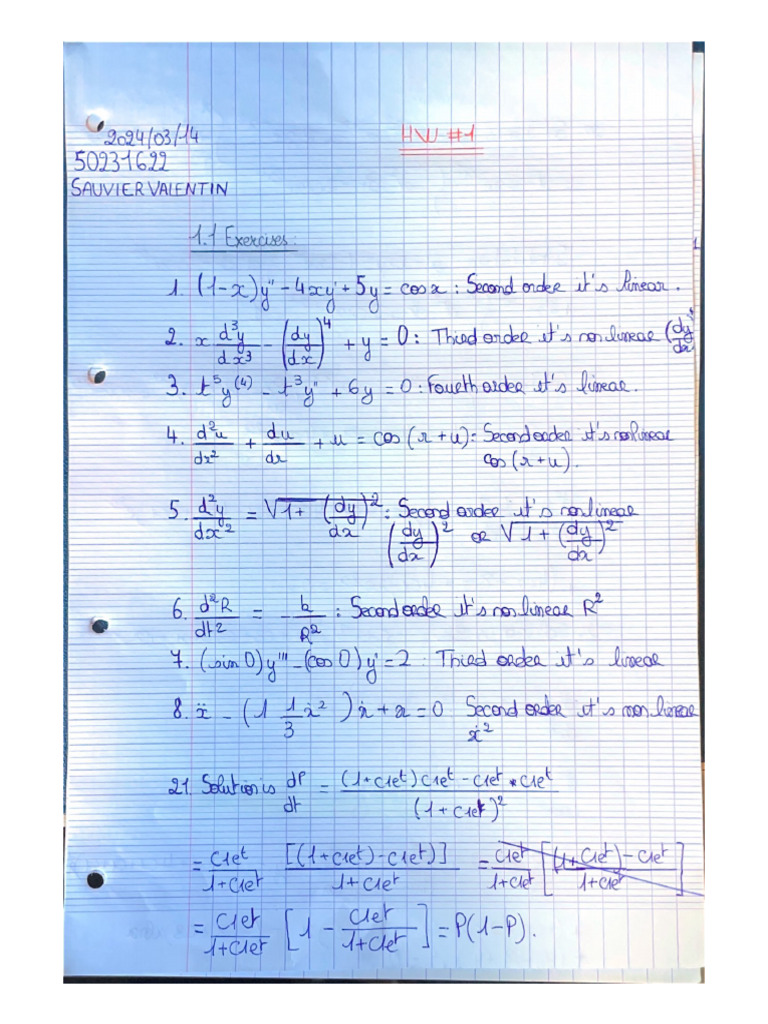 2024/03/14
HW #1
50231622
SAUVIER VALENTIN
1.1 Exercises:
1. (1-x)y" - 4xy' + 5y = cos x : Second order it's linear.
2. x d³y/dx³ - (dy/dx)⁴ + y = 0 : Third order it's non linear (dy/dx)⁴
3. t⁵y⁽⁴⁾ - t³y" + 6y = 0 : Fourth order it's linear.
4. d²u/dr² + du/dr + u = cos(r+u) : Second order it's nonlinear
cos(r+u).
5. d²y/dx² = √1+(dy/dx)² : Second order it's nonlinear
(dy/dx)² or √1+(dy/dx)²
6. d²R/dt² = - k/R² : Second order it's non linear R²
7. (sin θ)y''' - (cos θ)y' = 2 : Third order it's linear
8. ẍ - (1 1/3 ẋ²)ẋ + x = 0 Second order it's non linear
ẋ²
21. Solution is dP/dt = (1+C1eᵗ)C1eᵗ - C1eᵗ * C1eᵗ / (1+C1eᵗ)²
= C1eᵗ/1+C1eᵗ [(1+C1eᵗ)-C1eᵗ)]/1+C1eᵗ = C1eᵗ/1+C1eᵗ [(1+C1eᵗ)-C1eᵗ/1+C1eᵗ]
= C1eᵗ/1+C1eᵗ [1 - C1eᵗ/1+C1eᵗ] = P(1-P).
1